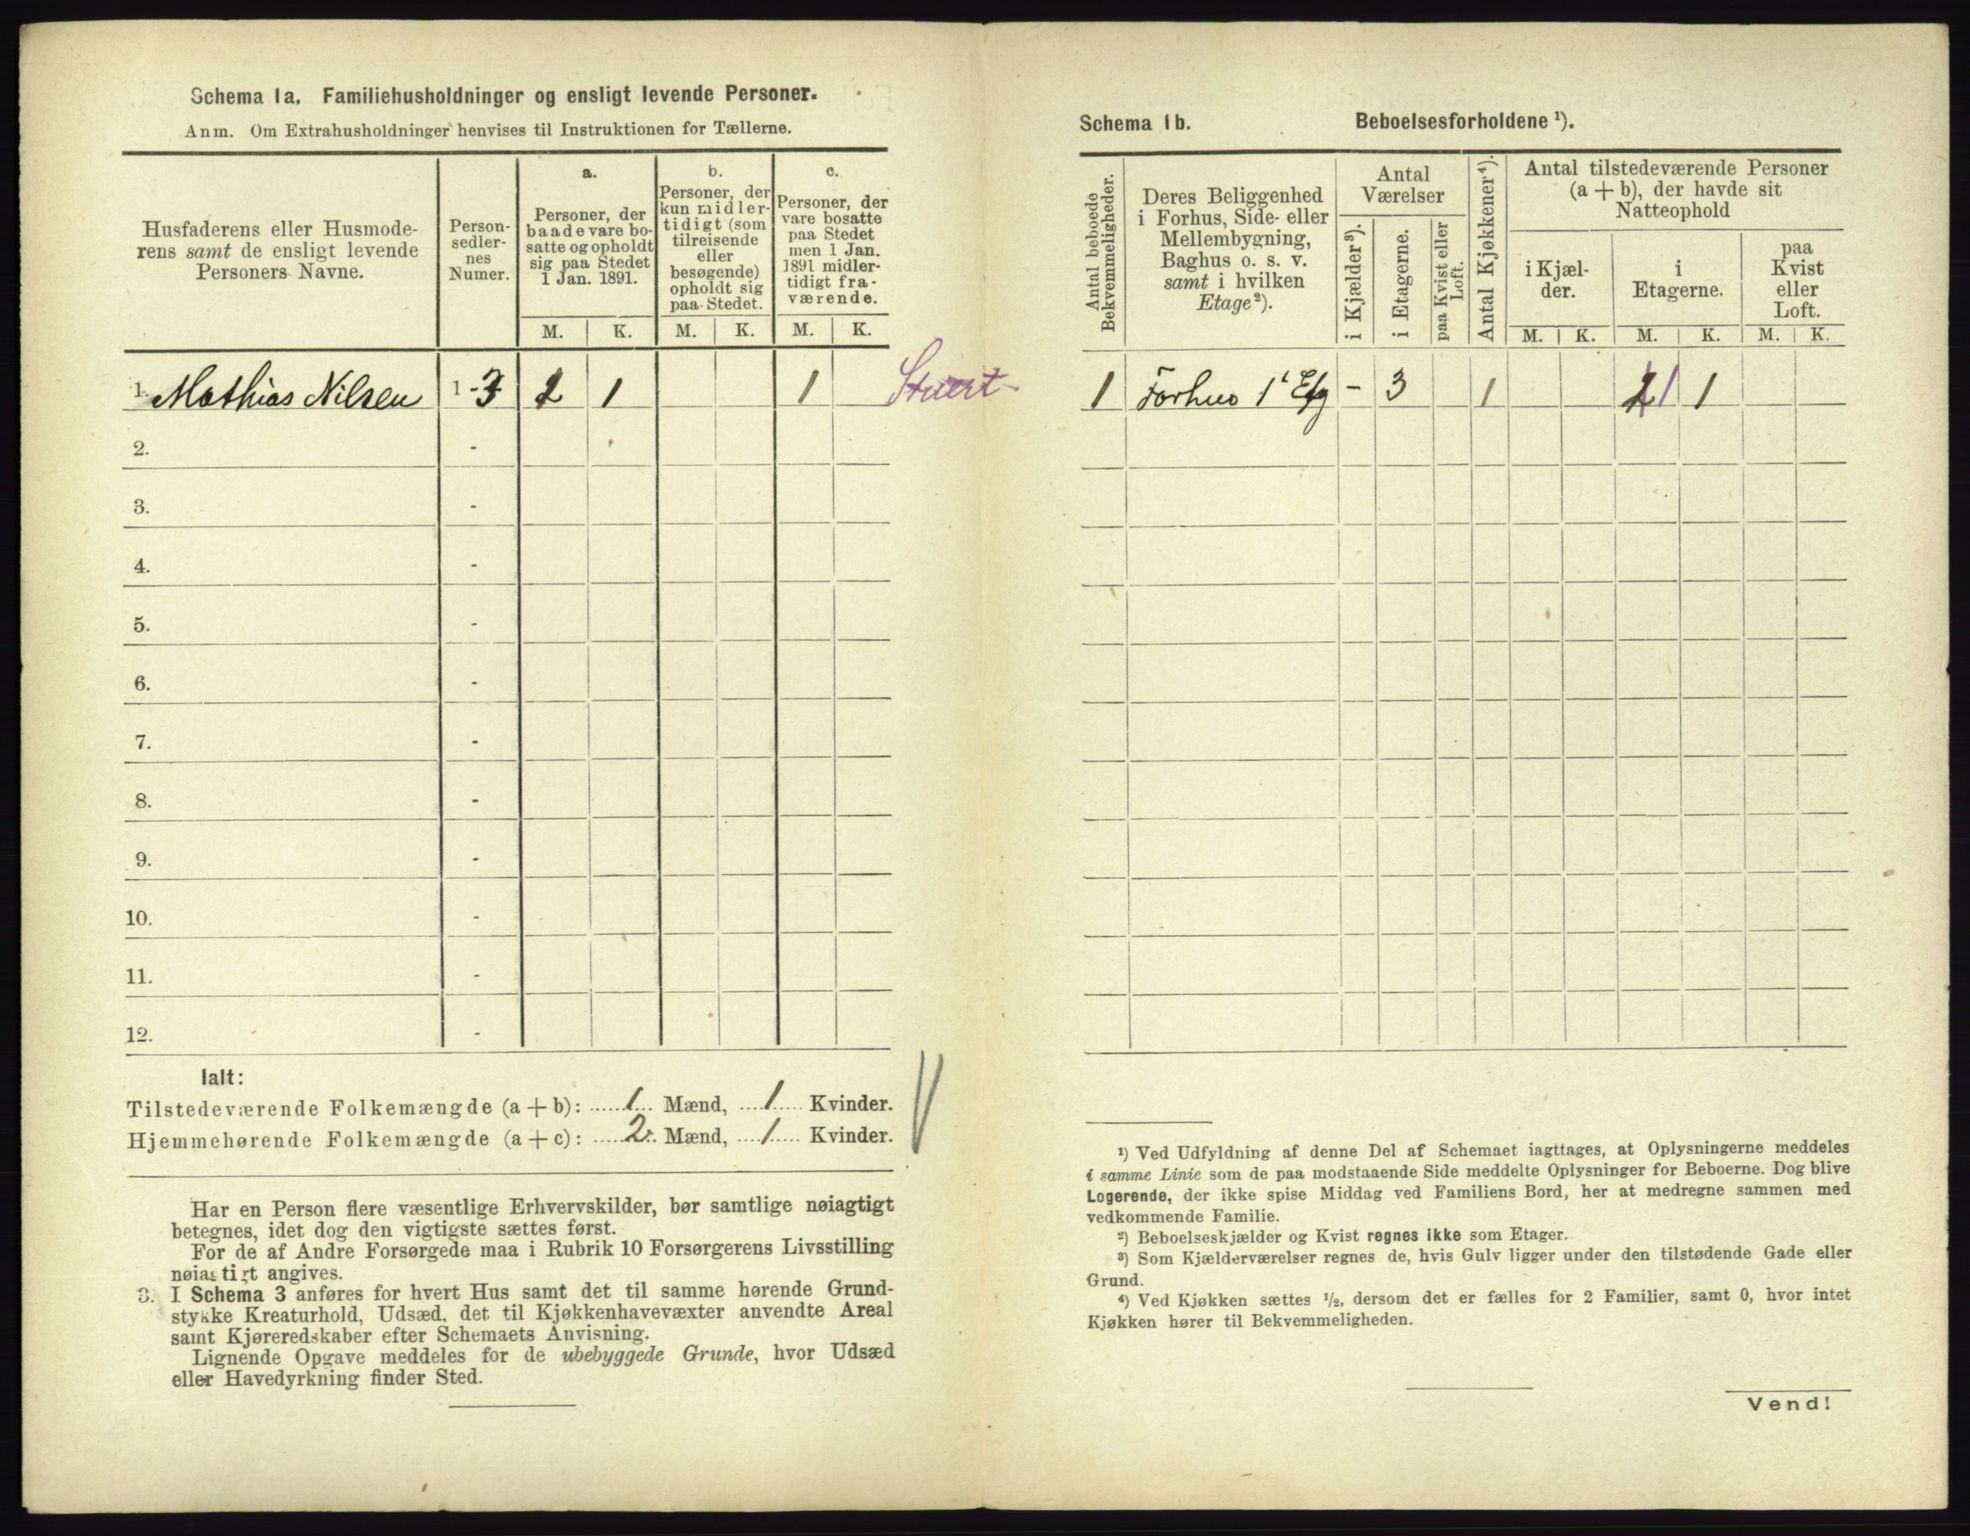 Schema 1a. Familiehusholdninger og ensligt levende Personer.
Anm. Om Extrahusholdninger henvises til Instruktionen for Tællerne.
Husfaderens eller Husmode-
rens samt de ensligt levende
Personers Navne.
Person-
sedler-
nes
Numer.
a.
Personer, der
baade vare bo-
satte og opholdt
sig paa Stedet
1 Jan. 1891.
b.
Personer, der
kun midler-
tidigt (som
tilreisende
eller
besøgende)
opholdt sig
paa Stedet.
c.
Personer, der
vare bosatte
paa Stedet
men 1 Jan.
1891 midler-
tidigt fra-
værende.
M. K. M. K. M. K.
1. Mathias Nilsen 1 - 3 1 1
2. -
3. -
4. -
5. -
6. -
7. -
8. -
9. -
10. -
11. -
12. -
Ialt:
Tilstedeværende Folkemængde (a + b): 1 Mænd, 1 Kvinder.
Hjemmehørende Folkemængde (a + c): 2 Mænd, 1 Kvinder.
Har en Person flere væsentlige Erhvervskilder, bør samtlige nøiagtigt
betegnes, idet dog den vigtigste sættes først.
For de af Andre Forsørgede maa i Rubrik 10 Forsørgerens Livsstilling
nøiagtigt angives.
3. I Schema 3 anføres for hvert Hus samt det til samme hørende Grund-
stykke Kreaturhold, Udsæd, det til Kjøkkenhavevæxter anvendte Areal
samt Kjøreredskaber efter Schemaets Anvisning.
Lignende Opgave meddeles for de ubebyggede Grunde, hvor Udsæd
eller Havedyrkning finder Sted.
Schema 1b. Beboelsesforholdene ¹).
Antal beboede
Bekvemmeligheder.
Deres Beliggenhed
i Forhus, Side- eller
Mellembygning,
Baghus o. s. v.
samt i hvilken
Etage²).
Antal
Værelser
i Kjælder³).
i Etagerne.
paa Kvist eller
Loft.
Antal Kjøkkener⁴).
Antal tilstedeværende Personer
(a + b), der havde sit
Natteophold
i Kjæl-
der.
i
Etagerne.
paa
Kvist
eller
Loft.
M. K. M. K. M. K.
1 Forhus 1 Etg - 3 1 2 1 1
¹) Ved Udfyldning af denne Del af Schemaet iagttages, at Oplysningerne meddeles
i samme Linie som de paa modstaaende Side meddelte Oplysninger for Beboerne. Dog blive
Logerende, der ikke spise Middag ved Familiens Bord, her at medregne sammen med
vedkommende Familie.
²) Beboelseskjælder og Kvist regnes ikke som Etager.
³) Som Kjælderværelser regnes de, hvis Gulv ligger under den tilstødende Gade eller
Grund.
⁴) Ved Kjøkken sættes ½, dersom det er fælles for 2 Familier, samt 0, hvor intet
Kjøkken hører til Bekvemmeligheden.
Vend!